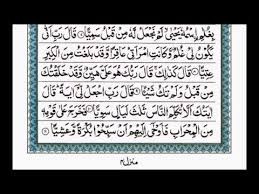 بِغُلٰمِ ِۨاسْمُهٗ يَحْيٰى لَمْ نَجْعَلْ لَّهٗ مِنْ قَبْلُ سَمِيًّا ۝ قَالَ رَبِّ اَنّٰى
يَكُوْنُ لِيْ غُلٰمٌ وَّكَانَتِ امْرَاَتِيْ عَاقِرًا وَّقَدْ بَلَغْتُ مِنَ الْكِبَرِ
عِتِيًّا ۝ قَالَ كَذٰلِكَ ۚ قَالَ رَبُّكَ هُوَ عَلَيَّ هَيِّنٌ وَّقَدْ خَلَقْتُكَ
مِنْ قَبْلُ وَلَمْ تَكُ شَيْئًا ۝ قَالَ رَبِّ اجْعَلْ لِّيْ اٰيَةً ؕ قَالَ
اٰيَتُكَ اَلَّا تُكَلِّمَ النَّاسَ ثَلٰثَ لَيَالٍ سَوِيًّا ۝ فَخَرَجَ عَلٰى قَوْمِهٖ
مِنَ الْمِحْرَابِ فَاَوْحٰى اِلَيْهِمْ اَنْ سَبِّحُوْا بُكْرَةً وَّعَشِيًّا ۝
منزل ۴